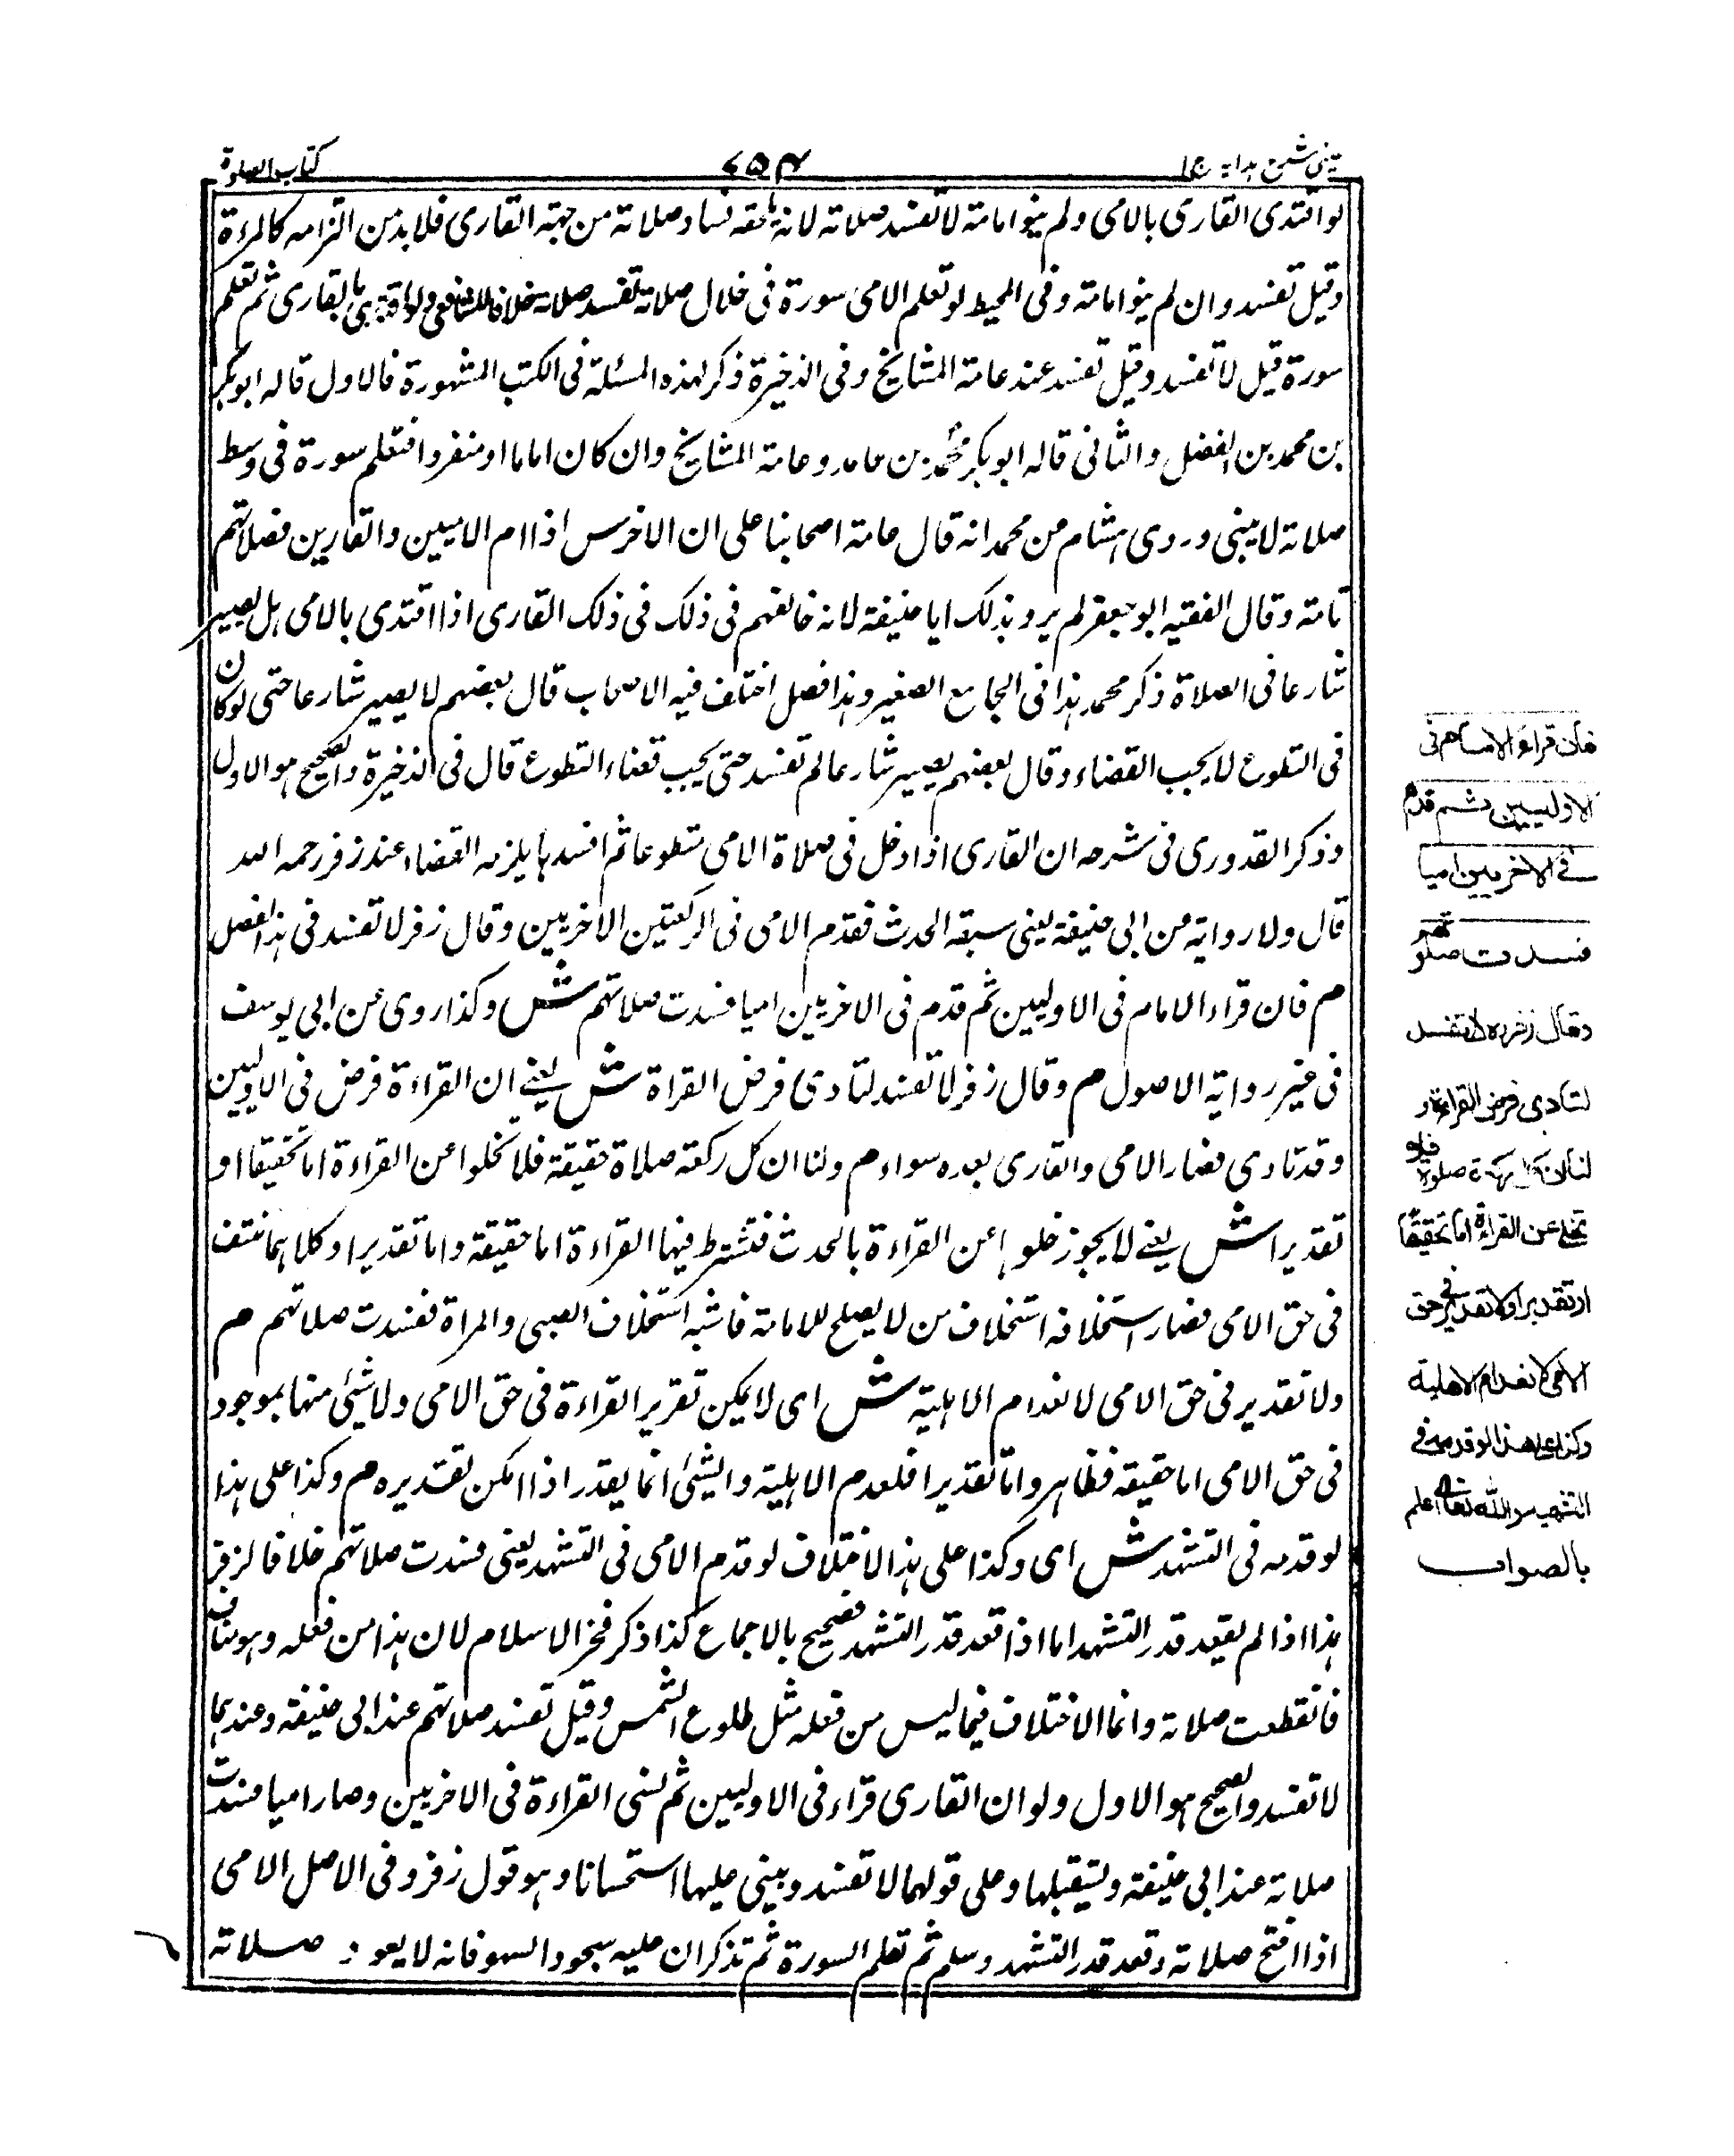 عینی شرح ہدایہ ج ۱
۷۵۴
کتاب الصلوة
لو اقتدى القارى بالامى ولم ينو امامته لا تفسد صلاته لانه يلحقه فساد صلاته من جهة القارى فلا بد من التزامه كالمرءة
وقيل تفسد وان لم ينو امامته وفى المحيط لو تعلم الامى سورة فى خلال صلاته تفسد صلاته خلافا للشافعى ولو اقتدى بالقارى ثم تعلم
سورة قيل لا تفسد وقيل تفسد عند عامة المشايخ وفى الذخيرة ذكر لهذه المسئلة فى الكتب المشهورة فالاول قاله ابو بكر
بن محمد بن الفضل والثانى قاله ابو بكر محمد بن حامد وعامة المشايخ وان كان اماما او منفردا فتعلم سورة فى وسط
صلاته لا يبنى وروى هشام عن محمد انه قال عامة اصحابنا على ان الاخرس اذا ام الاميين والقارين فصلاتهم
تامة وقال الفقيه ابو جعفر لم يرو بذلك ابا حنيفة لانه خالفهم فى ذلك فى ذلك القارى اذا اقتدى بالامى هل يصير
شارعا فى الصلاة ذكر محمد هذا فى الجامع الصغير وهذا فصل اختلف فيه الاصحاب قال بعضهم لا يصير شارعا حتى لو كان
فى التطوع لا يجب القضاء وقال بعضهم يصير شارعا لم تفسد حتى يجب قضاء التطوع قال فى الذخيرة والصحيح هو الاول
وذكر القدورى فى شرحه ان القارى اذا دخل فى صلاة الامى متطوعا ثم افسدها يلزمه القضاء عند زفر رحمه الله
قال ولا رواية عن ابى حنيفة يعنى سبقه الحدث فقدم الامى فى الركعتين الاخريين وقال زفر لا تفسد فى هذا الفصل
م فان قراء الامام فى الاوليين ثم قدم فى الاخريين اميا فسدت صلاتهم ش وكذا روى عن ابى يوسف
فى غير رواية الاصول م وقال زفر لا تفسد لتادى فرض القراة ش يعنى ان القراءة فرض فى الاوليين
وقد تادى فصار الامى والقارى بعده سواء م ولنا ان كل ركعة صلاة حقيقة فلا تخلوا عن القراءة اما تحقيقا او
تقديرا ش يعنى لا يجوز خلوها عن القراءة بالحدث فتشترط فيها القراءة اما حقيقة واما تقديرا وكلاهما منتف
فى حق الامى فصار استخلافه استخلاف من لا يصلح للامامة فاشبه استخلاف الصبى والمراة ففسدت صلاتهم م
ولا تقدير فى حق الامى لانعدام الاهلية ش اى لا يمكن تقرير القراءة فى حق الامى ولا شئ منها بموجود
فى حق الامى اما حقيقة فظاهر واما تقديرا فلعدم الاهلية والشئ انما يقدر اذا امكن تقديره م وكذا على هذا
لو قدمه فى التشهد ش اى وكذا على هذا الاختلاف لو قدم الامى فى التشهد يعنى فسدت صلاتهم خلافا لزفر
هذا اذا لم يقعد قدر التشهد اما اذا قعد قدر التشهد فصحيح بالاجماع كذا ذكر فخر الاسلام لان هذا من فعله وهو مناف
فانقطعت صلاته وانما الاختلاف فيما ليس من فعله مثل طلوع الشمس وقيل تفسد صلاتهم عند ابى حنيفة وعندهما
لا تفسد والصحيح هو الاول ولو ان القارى قراء فى الاوليين ثم نسى القراءة فى الاخريين وصار اميا فسدت
صلاته عند ابى حنيفة ويستقبلها وعلى قولهما لا تفسد ويبنى عليها استحسانا وهو قول زفر وفى الاصل الامى
اذا افتتح صلاته وقعد قدر التشهد وسلم ثم تعلم السورة ثم تذكر ان عليه سجود السهو فانه لا يعود صلاته
فان قراء الامام فى
الاوليين ثم قدم
فى الاخريين اميا
فسدت صلوتهم
وقال زفر ره لا تفسد
لتادى فرض القراءة و
لنا ان كل ركعة صلوة فلا
تخلى عن القراءة اما تحقيقا
او تقديرا ولا تقدير فى حق
الامى لانعدام الاهلية
وكذا على هذا لو قدمه فى
التشهد والله تعالى اعلم
بالصواب